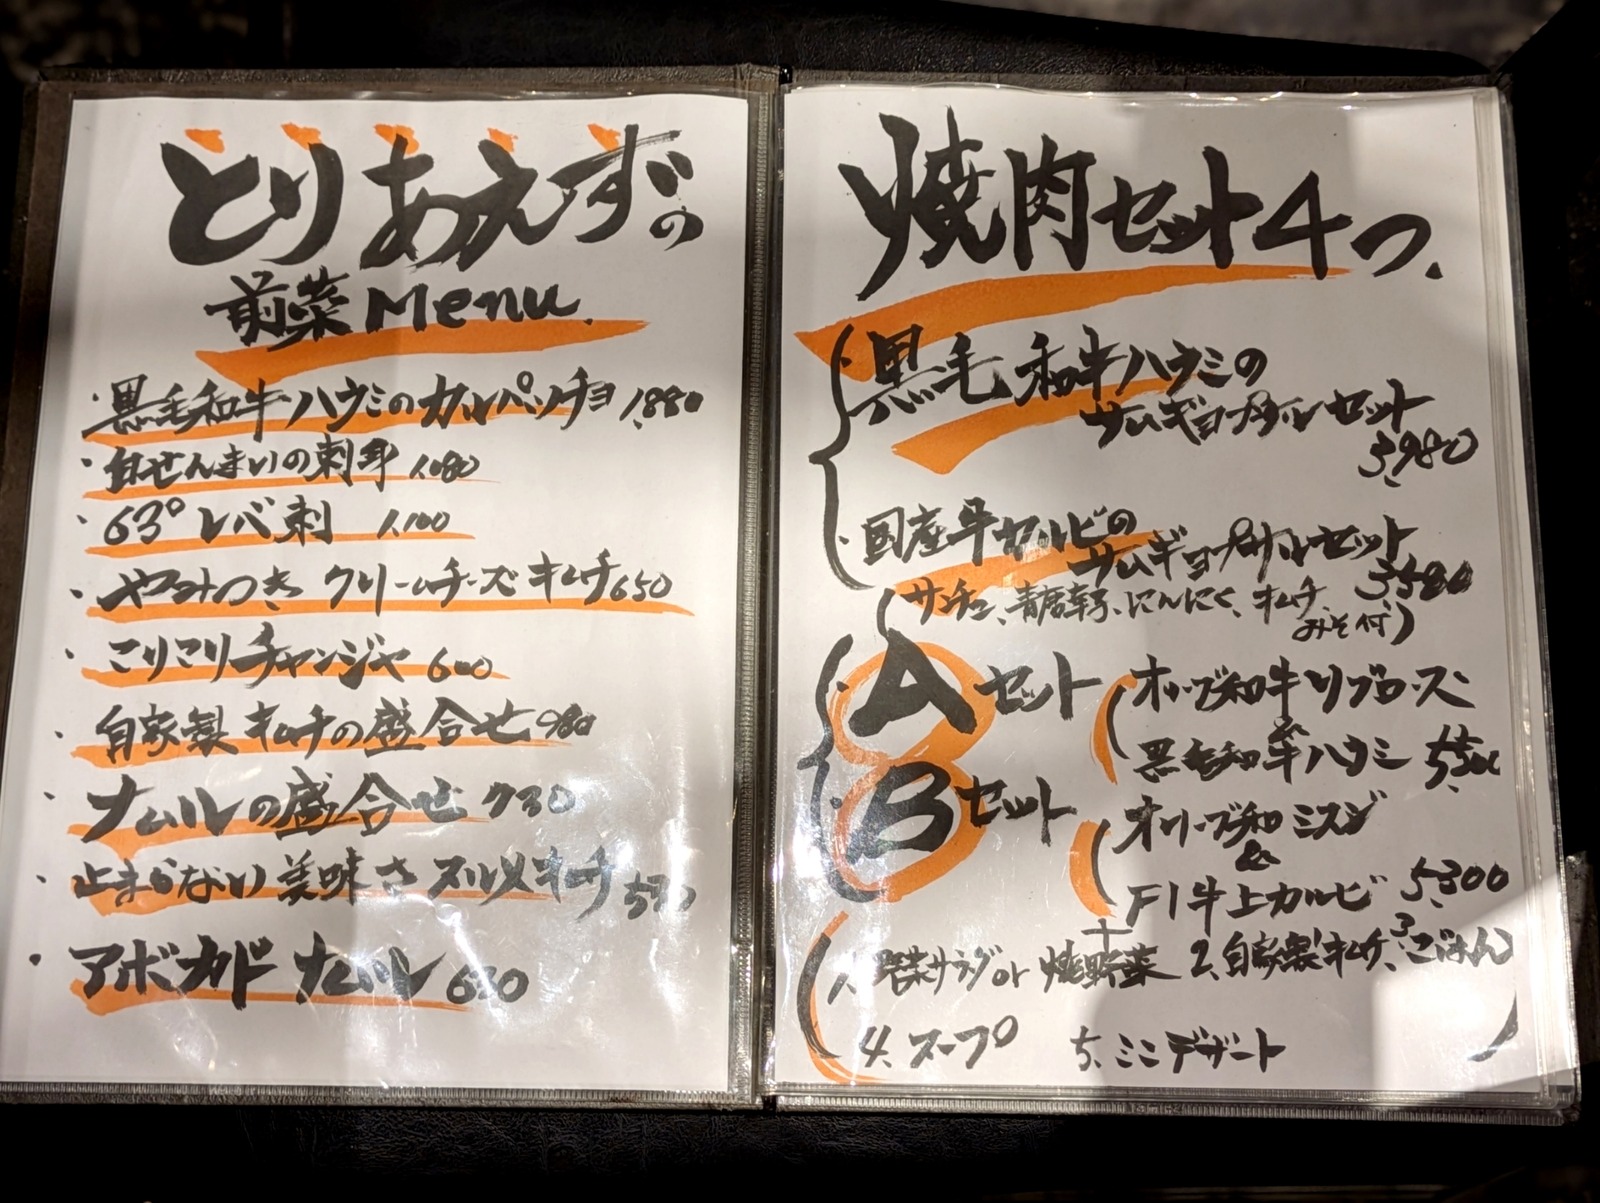 とりあえずの
前菜Menu.
・黒毛和牛ハラミのカルパッチョ 1.880
・白せんまいの刺身 1.080
・63°レバ刺 1.100
・やみつき クリームチーズキムチ 650
・こりこりチャンジャ 600
・自家製キムチの盛合せ 980
・ナムルの盛合せ 730
・止まらない美味さ ヌルメキーチ
・アボカドナムル 630
焼肉セット4つ.
・黒毛和牛ハラミの
サムギョプサルセット
3.980
・国産牛カルビの
サムギョプサルセット
3.580
(サンチュ、青唐辛子、にんにく、キムチ、
みそ付)
・Aセット
オリーブ和牛リブロース
&
黒毛和牛ハラミ
・Bセット
オリーブ和ミスジ
&
F1牛上カルビ 5.300
+
(1.野菜サラダor焼野菜 2.自家製キムチ、3.ごはん
4.スープ 5.ミニデザート)